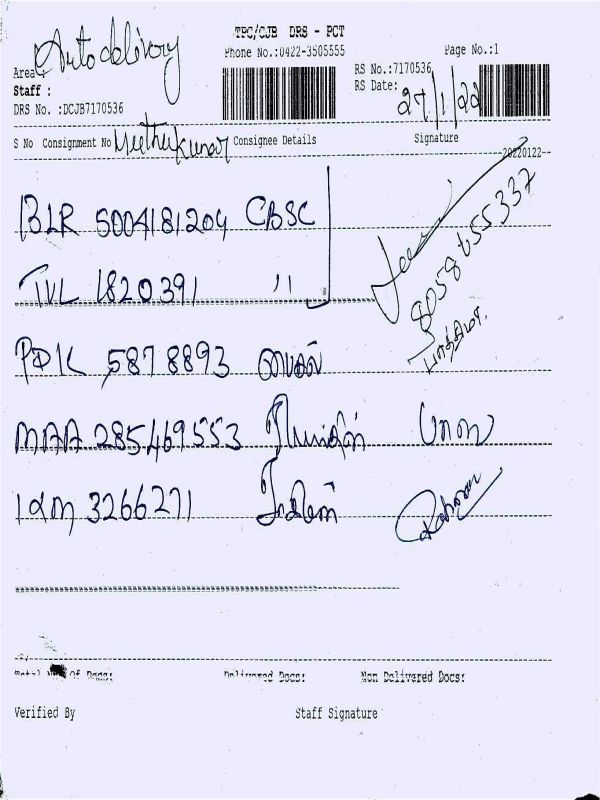 TPC/CJB DRS - PCT
Phone No.:0422-3505555 Page No.:1
Auto delivery
Area:
RS No.:7170536
Staff :
RS Date: 27/1/22
DRS No. :DCJB7170536
S No Consignment No Consignee Details Signature
20220122--
BLR 5004181204 CBSC
TVL 1820391 "
8058655337
பாத்திமா
PDK 5878893 பைசல்
MAA 285469553
IXM 3266271
Total No Of Docs: Delivered Docs: Non Delivered Docs:
Verified By Staff Signature